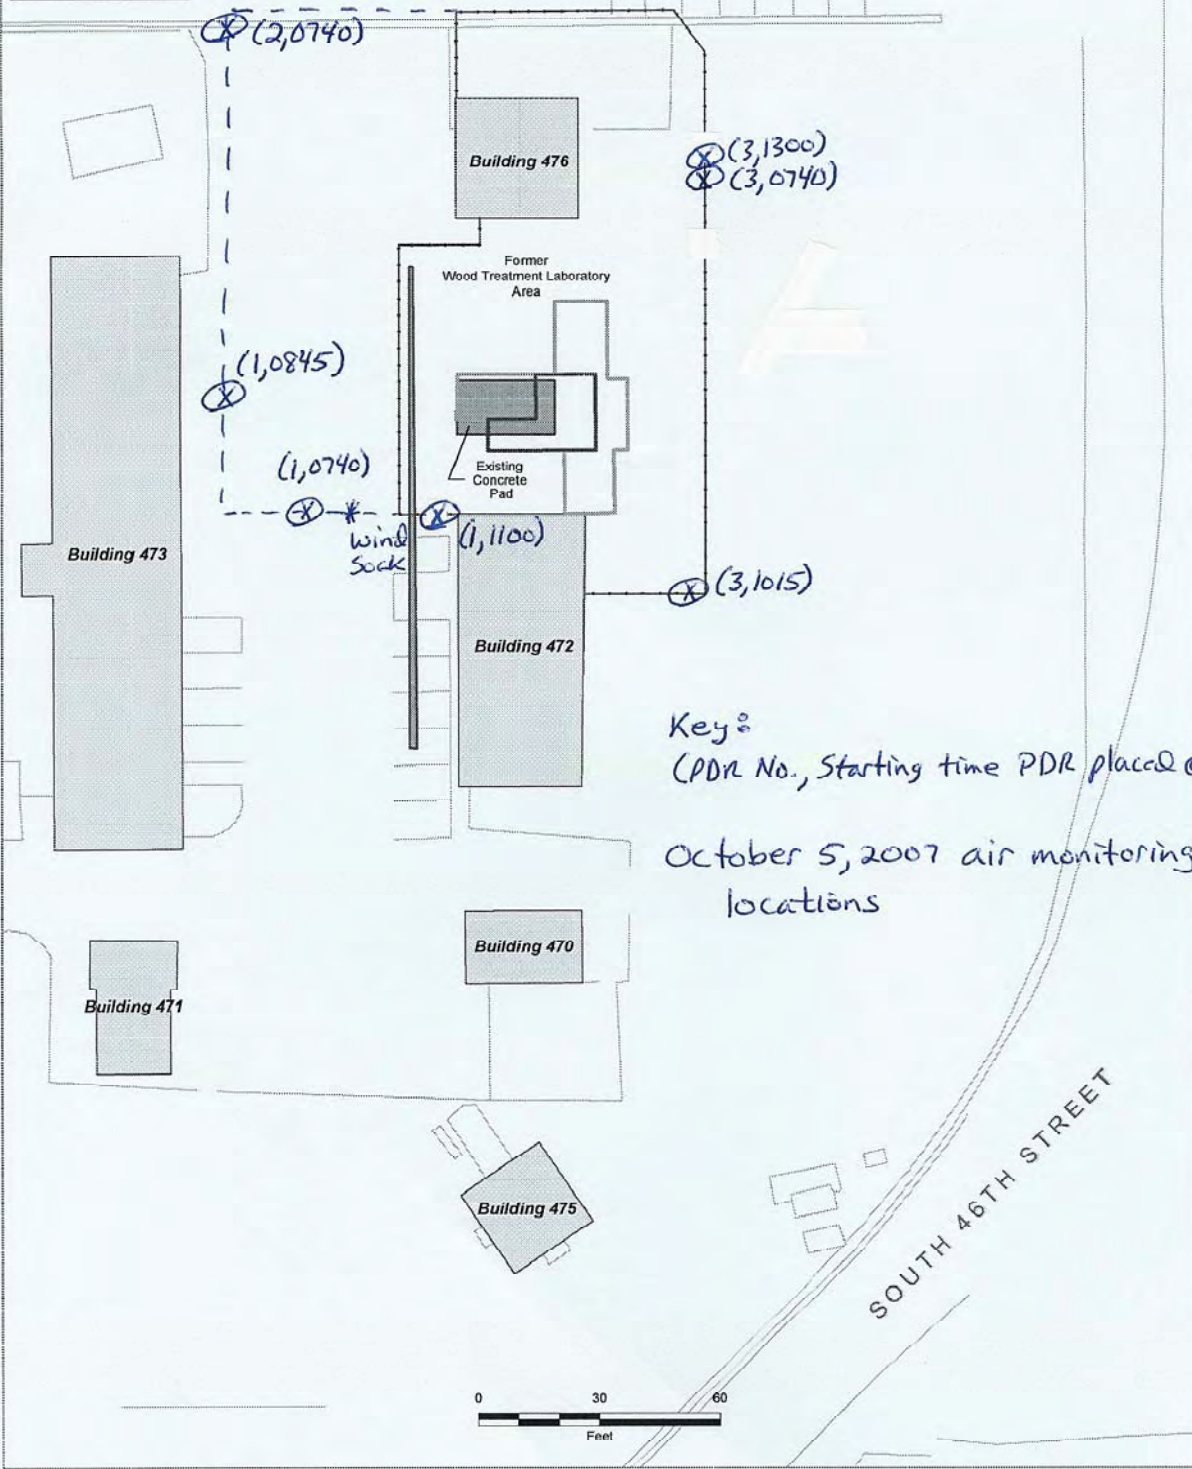 (2,0740)
Building 476
(3,1300)
(3,0740)
Former
Wood Treatment Laboratory
Area
(1,0845)
(1,0740)
Existing
Concrete
Pad
Wind
Sock
(1,1100)
Building 473
(3,1015)
Building 472
Key:
(PDR No., Starting time PDR placed @
October 5, 2007 air monitoring
locations
Building 470
Building 471
Building 475
SOUTH 46TH STREET
0 30 60
Feet